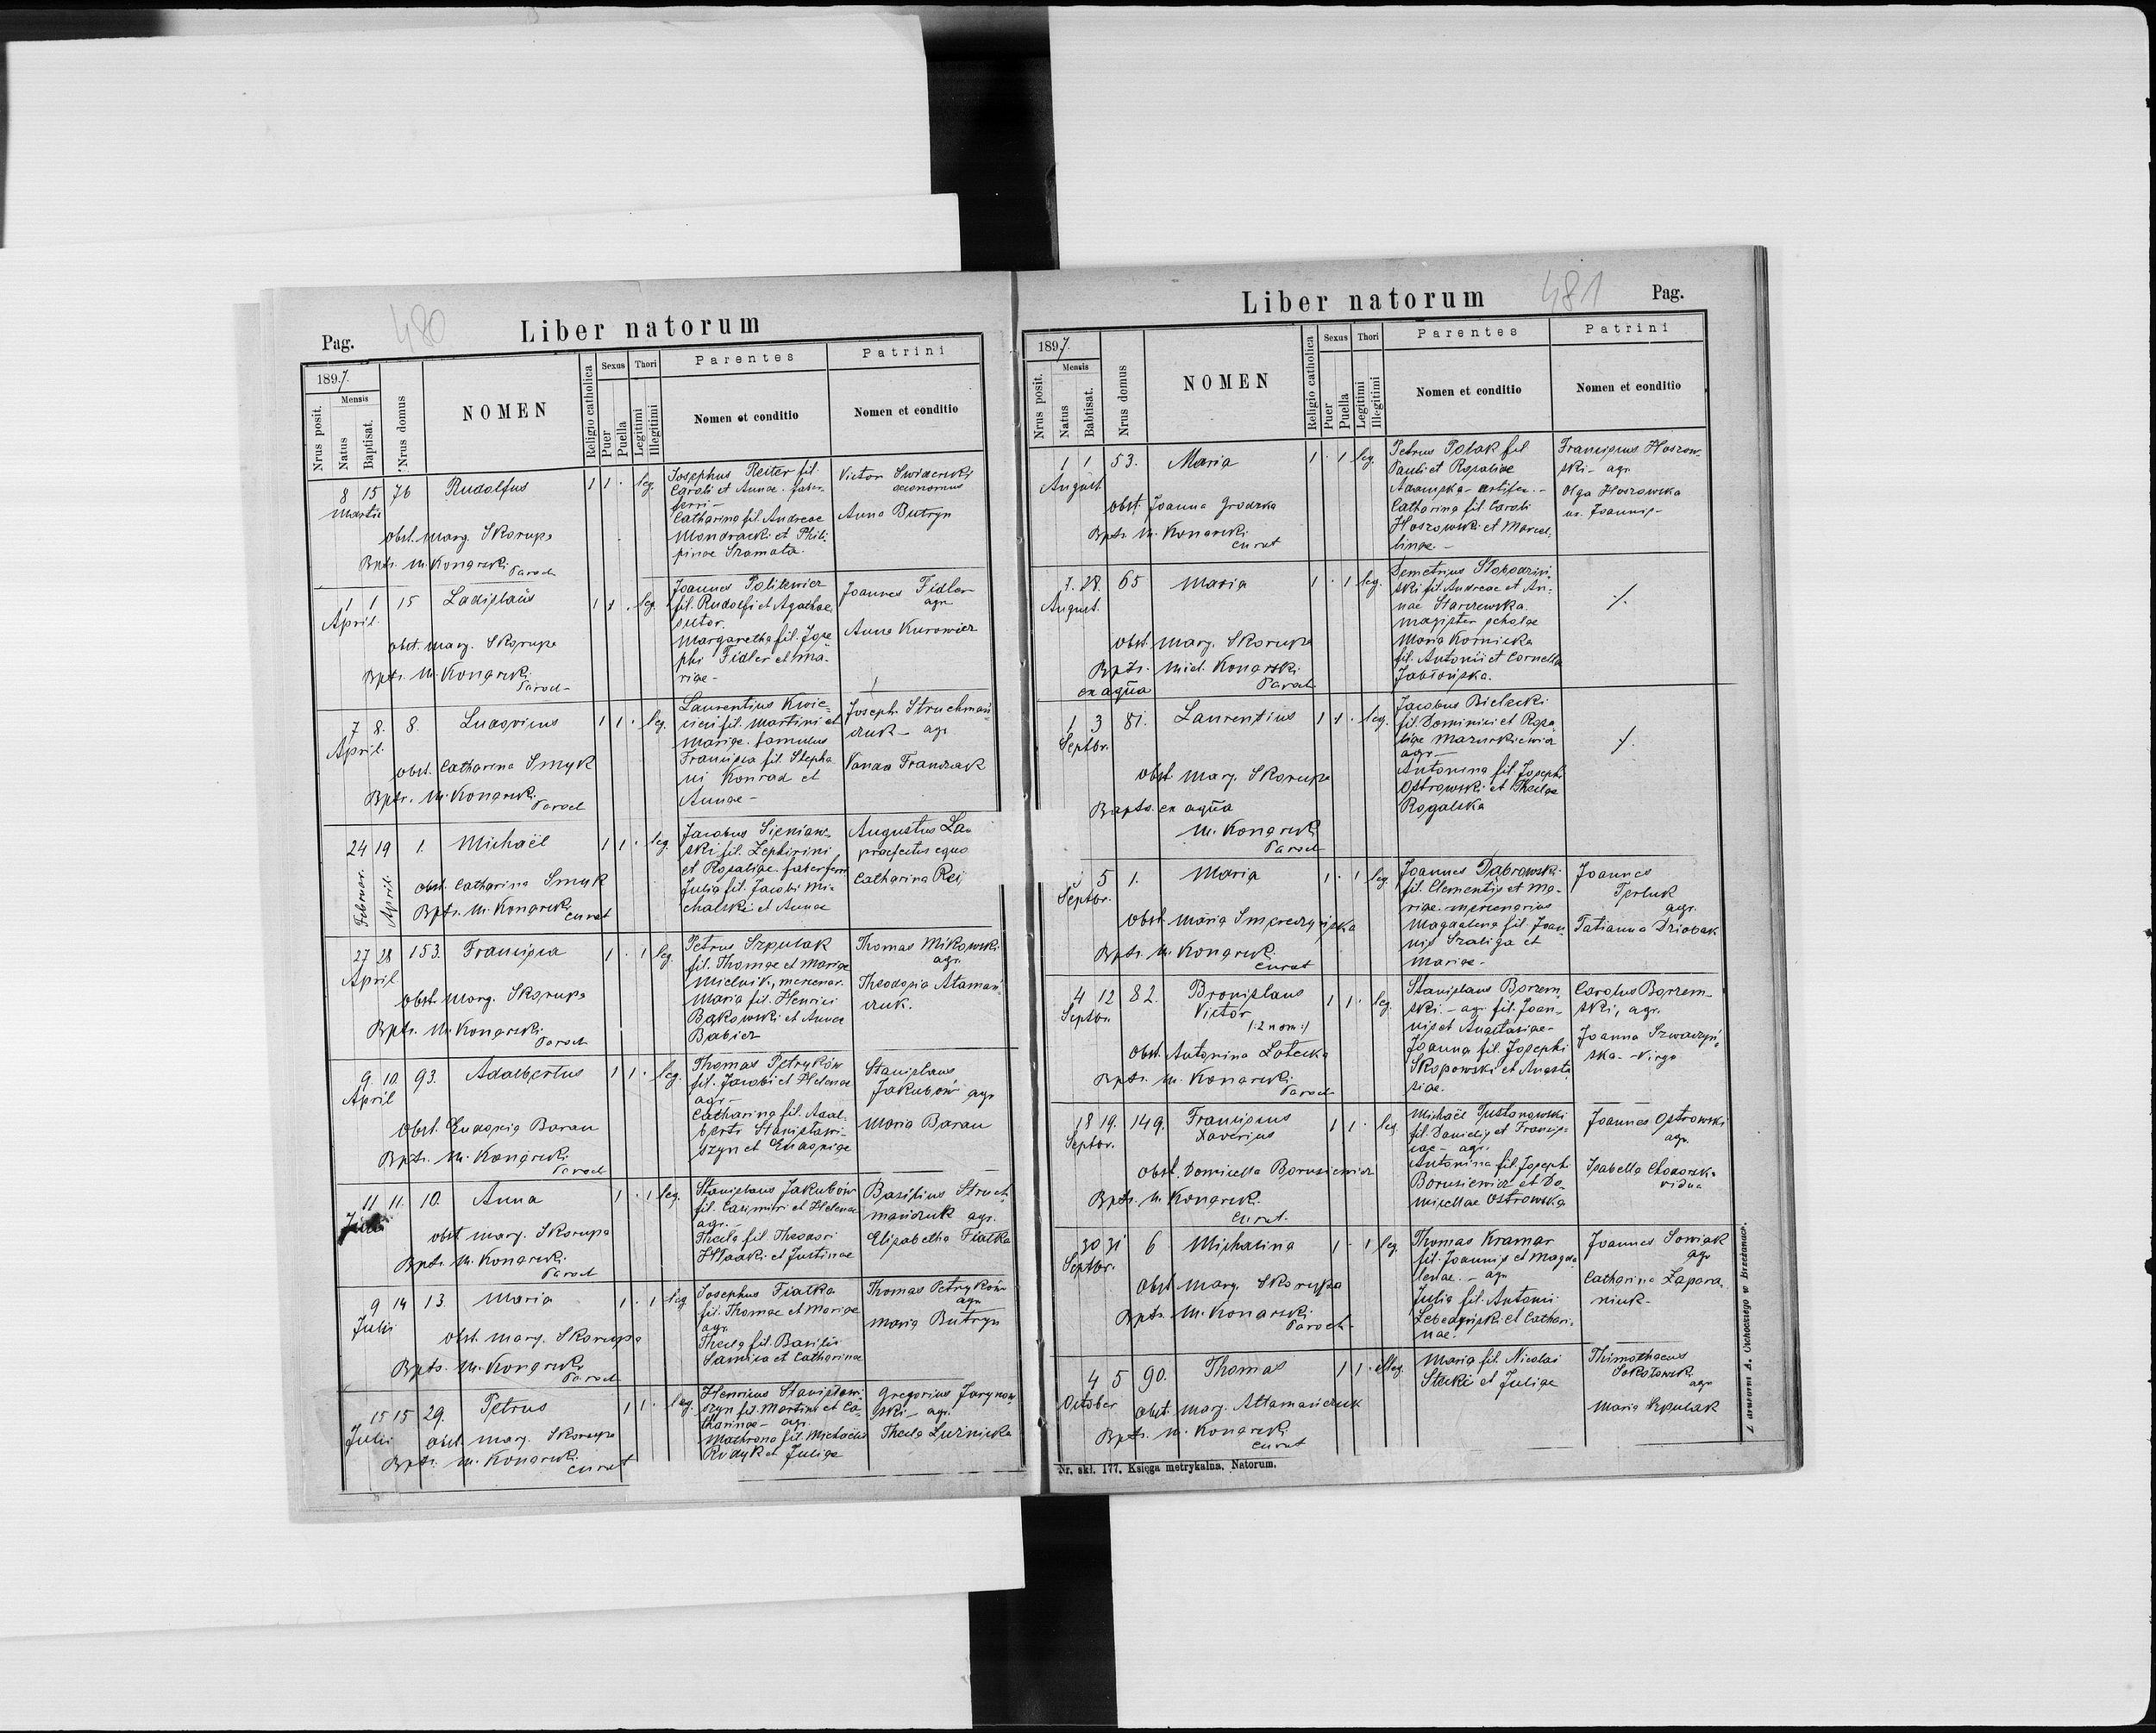 480
Pag.
Liber natorum
1897.
Nrus posit.
Mensis
Natus
Baptisat.
Nrus domus
NOMEN
Religio catholica
Sexus
Puer
Puella
Thori
Legitimi
Illegitimi
Parentes
Nomen et conditio
Patrini
Nomen et conditio
8 15 76 Rudolfus 1 1 . leg.
Martii
obst. Marg. Skorupa
Bpts. M. Konarski
Paroch
Josephus Reiter fil.
Caroli et Annae. faber
ferri —
Catharina fil. Andreae
Mondracki et Phili-
pinae Sramota.
Victor Swiderski
oeconomus
Anna Butryn
1 1 15 Ladislaus 1 1 . leg.
April.
obst. Marg. Skorupa
Bpts. M. Konarski
Paroch
Joannes Politewicz
fil. Rudolfi et Agathae
sutor.
Margaretha fil. Jose-
phi Fidler et Ma-
riae —
Joannes Fidler
agr.
Anna Kurowicz
7 8. 8. Ludovicus 1 1 . leg.
April.
obst. Catharina Smyk
Bpts. M. Konarski
Paroch
Laurentius Kwie-
cień fil. Martini et
Mariae. famulus
Francisca fil. Stepha
ni Konrad et
Annae —
Joseph. Struchmań-
czuk — agr.
Franczak
24 19 1. Michaël 1 1 . leg.
Februar. April.
obst. Catharina Smyk
Bpts. M. Konarski
curat
Jacobus Sieniaw-
ski fil. Zephirini
et Rosaliae. faber ferri
Julia fil. Jacobi Mi-
chalski et Annae
Augustus
praefectus
Catharina Rej
27 28 153. Francisca 1 . 1 leg.
April
obst. Marg. Skorupa
Bpts. M. Konarski
Paroch
Petrus Szpulak
fil. Thomae et Mariae
Mielnik, mercenar.
Maria fil. Henrici
Bąkowski et Annae
Babicz
Thomas Mikowski
agr.
Theodosia Atamań-
czuk.
9. 10. 93. Adalbertus 1 1 . leg.
April
obst. Eudopia Baran
Bpts. M. Konarski
Paroch
Thomas Petryków
fil. Jacobi et Helenae
agr —
Catharina fil. Adal-
berti Stanisławi-
szyn et Eudopiae
Stanislaus
Jakubów agr
Maria Baran
11 11. 10. Anna 1 . 1 leg.
obst Marg. Skorupa
Bpts. M. Konarski
Paroch
Stanislaus Jakubów
fil. Casimiri et Helenae
agr. —
Thecla fil. Theodori
et Justinae
Basilius Struch
mańczuk agr.
Elisabetha Fiatka
9 14 13. Maria 1 . 1 leg
Julii
obst. Marg. Skorupa
Bpts. M. Konarski
Paroch
Josephus Fiatka
fil. Thomae et Mariae
agr.
Thecla fil. Basilii
et Catharinae
Thomas Petryków
agr
Maria Butryn
15 15 29. Petrus 1 1 . leg.
Julii
obst. Marg. Skorupa
Bpts. M. Konarski
curat
Henricus Stanisławi-
szyn fil. Martini et Ca-
tharinae — agr.
Mathrona fil. Michaëlis
Rudyk et Juliae
Gregorius Jarynow-
ski — agr.
Thecla Luźnicka
481
Liber natorum
Pag.
1897.
Nrus posit.
Mensis
Natus
Babtisat.
Nrus domus
NOMEN
Religio catholica
Sexus
Puer
Puella
Thori
Legitimi
Illegitimi
Parentes
Nomen et conditio
Patrini
Nomen et conditio
1 1 53. Maria 1 . 1 leg.
August.
obst. Joanna Grodzka
Bpts. M. Konarski
curat
Petrus Polak fil
Pauli et Rosaliae
Adamska — artifex. —
Catharina fil. Caroli
Hoszowski et Marcel-
linae. —
Franciscus Hoszow-
ski — agr.
Olga Hoszowska
ux. Joannis —
7. 28. 65 Maria 1 . 1 leg.
August.
obst. Marg. Skorupa
Bpts. Mich. Konarski
ex aqua Paroch
Demetrius Słobodzin-
ski fil. Andreae et An-
nae Starzewska.
magister scholae
Maria Kornicka
fil. Antonii et Cornelia
Jabłońska.
./.
1 3 81. Laurentius 1 1 . leg.
Septbr.
obst. Marg. Skorupa
Bapts. ex aqua
M. Konarski
Paroch
Jacobus Bielecki
fil. Dominici et Rosa-
liae Mazurkiewicz
agr —
Antonina fil. Josephi
Ostrowski et Theclae
Rogalska
./.
5 1. Maria 1 . 1 leg.
Septbr.
obst Maria Smereczyńska
Bpts. M. Konarski
curat
Joannes Dąbrowski
fil. Clementis et Ma-
riae. mercenarius
Magdalena fil. Joan-
nis Szaliga et
Mariae.
Joannes
agr.
Tatianna Dziobak
4 12 82. Bronislaus 1 1 . leg.
Septbr. Victor
/: 2 nom :/
Obst. Antonina Łotecka
Bpts. M. Konarski
Paroch
Stanislaus Borzem-
ski. — agr. fil. Joan-
nis et Anastasiae —
Joanna fil. Josephi
Skopowski et Anasta
siae.
Carolus Borzem-
ski, agr.
Joanna Szwaczyń-
ska — virgo
18 19. 149. Franciscus 1 1 . leg.
Septbr. Xaverius
obst. Domicella Borusiewicz
Bpts. M. Konarski
curat.
Michaël Tustanowski
fil. Danielis et Francis-
cae — agr.
Antonina fil. Josephi
Borusiewicz et Do-
micellae Ostrowska
Joannes Ostrowski
agr.
Isabella Chodorska
vidua
30 31 6 Michalina 1 . 1 leg.
Septbr.
Obst Marg. Skorupa
Bpts. M. Konarski
Paroch
Thomas Kramar
fil. Joannis et Magda
lenae. — agr
Julia fil. Antonii
Lebedyński et Cathari-
nae.
Joannes Sowiak
agr
Catharina Zapara-
niuk —
4 5 90. Thomas 1 1 . illeg.
October
obst. Marg. Attamańczuk
Bpts. M. Konarski
curat
Maria fil. Nicolai
Stecki et Juliae
Thimothaeus
Sokołowski
agr
Maria Szpulak
Nr. skł. 177. Księga metrykalna, Natorum.
Z drukarni A. Ochockiego w Brzeżanach.